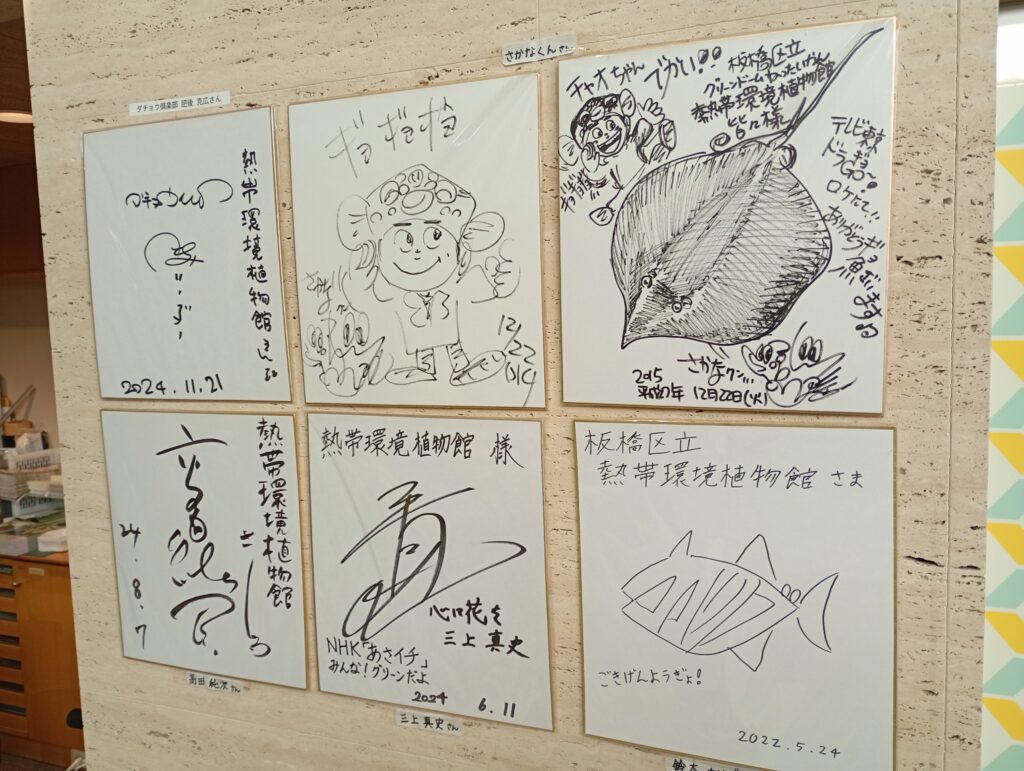 ダチョウ倶楽部 肥後 克広さん
熱帯環境植物館さん江
2024.11.21
さかなくんさん
ギョギョギョ
12/22
2014
チャオちゃん
でかい!!
板橋区立
グリーンドームねったいかん
熱帯環境植物館
皆々様
テレビ東京
ドラGO〜!
ロケにて!!
ありがとうギョ
ざいます
さかなクン
2015
平成27年 12月22日(火)
熱帯環境植物館
さん江
24.8.7
高田 純次さん
熱帯環境植物館 様
心に花を
三上 真史
NHK「あさイチ」
みんな!グリーンだよ
2024 6.11
三上 真史さん
板橋区立
熱帯環境植物館 さま
ごきげんようぎょ!
2022.5.24
鈴木